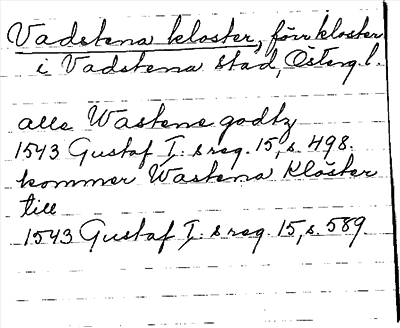 Vadstena kloster, förr kloster
i Vadstena stad, Österg.l.
alle Wastene godtz
1543 Gustaf I:s reg. 15, s. 498.
kommer Wastena Klöster
till
1543 Gustaf I:s reg. 15, s. 589.